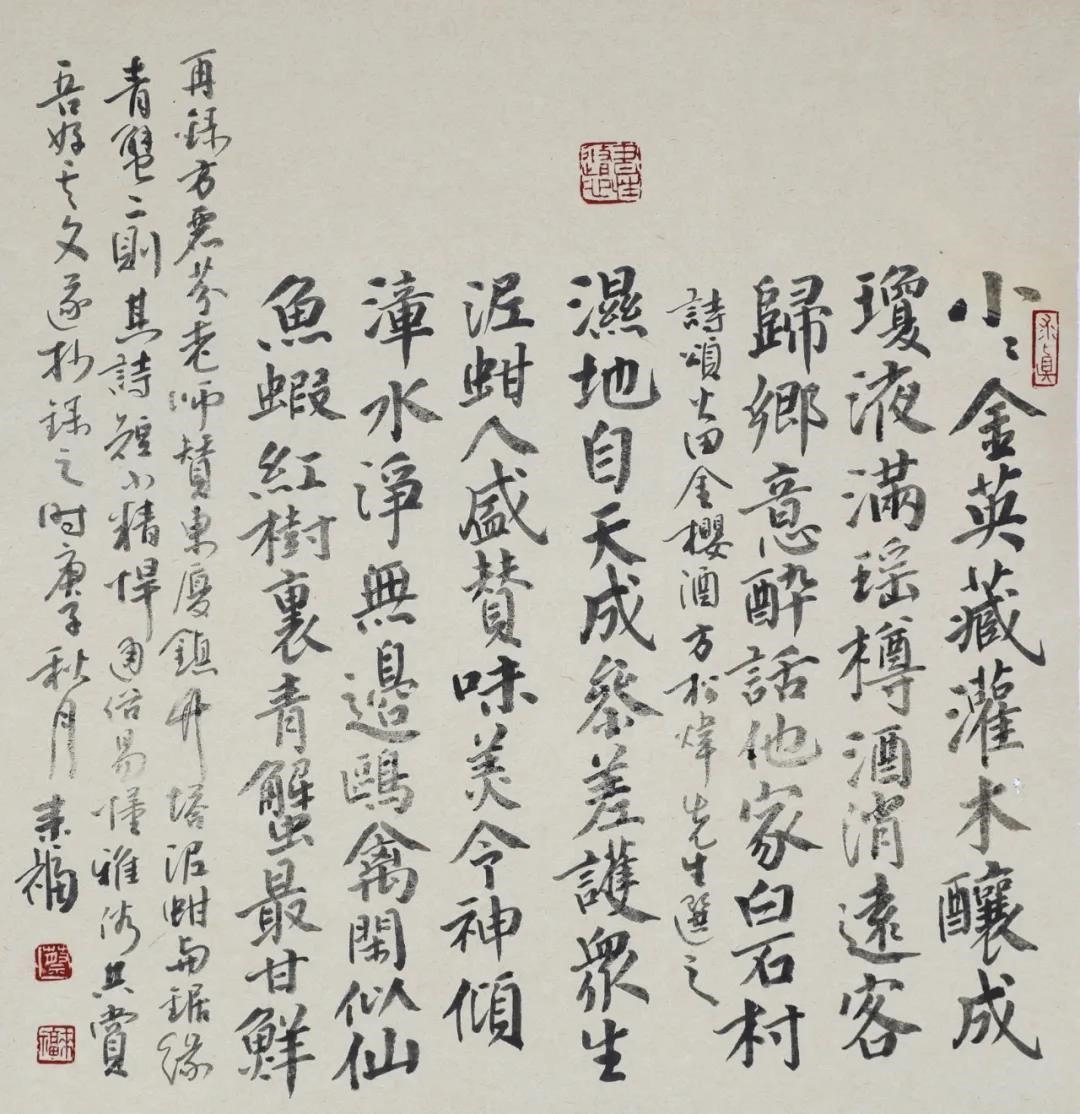 小〻金英藏灌木釀成
瓊液滿瑶樽酒消遠客
歸鄉意醉話他家白石村
詩頌火田金櫻酒方松煒先生選之
濕地自天成參差護眾生
泥蚶人盛赞味美令神傾
漳水淨無邊鷗禽閑似仙
魚蝦紅樹裏青蟹最甘鮮
再録方惠芬老师賛東廈鎮竹塔泥蚶與鋸緣
青蟹二則其詩短小精悍通俗易懂雅俗共賞
吾好其文遂抄録之时庚子秋月